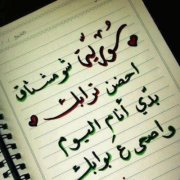 سوريتي شو مشتاق
احضن ترابك
بدي أنام اليوم
واصحى ع بوابك